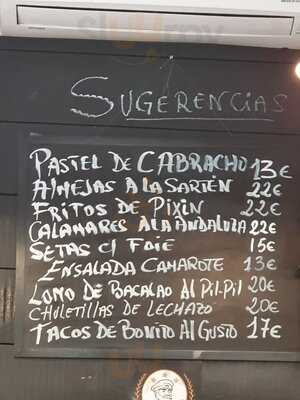 SUGERENCIAS
PASTEL DE CABRACHO 13€
ALMEJAS A LA SARTÉN 22€
FRITOS DE PIXÍN 22€
CALAMARES A LA ANDALUZA 22€
SETAS C/ FOIE 15€
ENSALADA CAMAROTE 13€
LOMO DE BACALAO AL PIL-PIL 20€
CHULETILLAS DE LECHAZO 20€
TACOS DE BONITO AL GUSTO 17€